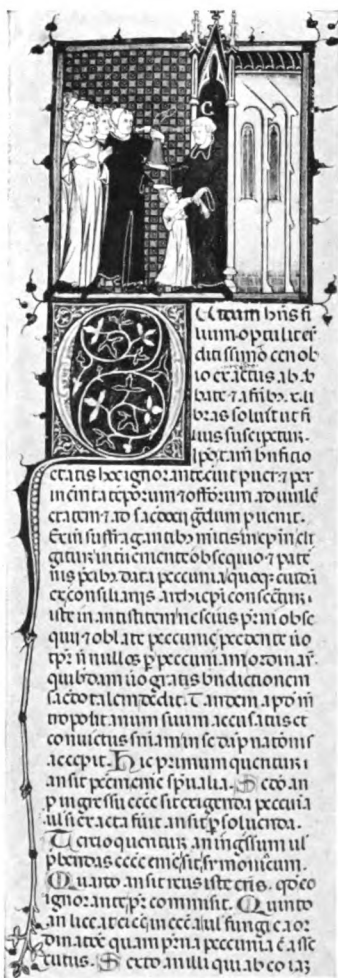 C
Q
uidam hñs fi
lium optulit eũ
ditissimo cenob
io exactus ab ab
bate ⁊ a frib; x. li
bras soluit ut fi
lius susciperetur.
ip̃o tam̃ bñficio
etatis hoc ignorante creuit puer ⁊ per
incrementa temporum ⁊ offitiorum ad uirilẽ
etatem ⁊ ad sacdocii gradum peruenit.
Exin suffragantib; meritis in ep̃m eli
gitur interueniente obsequio ⁊ pater
nis precib; data peccunia quoq; cuidam
ex consiliariis archiep̃i consecratur
iste in antistitem nescius pat̃ni obse
quii ⁊ oblate peccunie procedente ũo
tpr̃ nõnullos p peccuniam ordinauit.
quibdam ũo gratis bñdictionem
sacdotalem dedit. Tandem apd me
tropolitanum suum accusatus et
conuictus sñiam in se dãpnationis
accepit. Hic primum queritur
an sit peccm emere spũalia. Scdo an
p ingressu ecc̃e sit exigenda peccunia
ul si exacta fuit an sit psoluenda.
Tercio queritur an ingressum ul
pbendas ecc̃e emere sit symonicum.
Quarto an sit reus iste criminis qd eo
ignorante pr̃ commisit. Quinto
an liceat ei ee in ecc̃a ul fungi ea or
dinatõe quam pr̃na peccunia ẽ asse
cutus. Sexto an illi qui ab eo iam